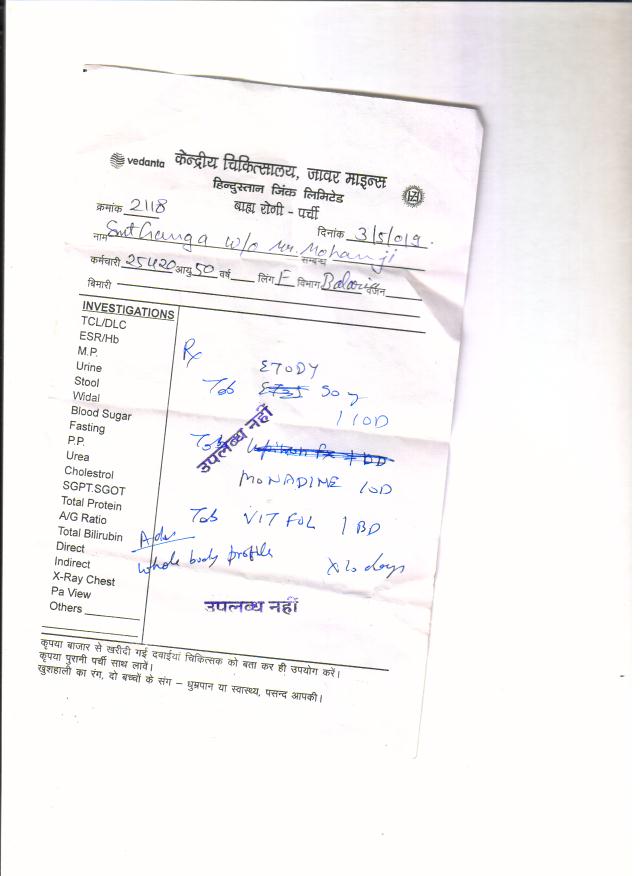 vedanta केन्द्रीय चिकित्सालय, जावर माइन्स
हिन्दुस्तान जिंक लिमिटेड
बाह्य रोगी - पर्ची
क्रमांक 2118
दिनांक 3/5/09.
नाम Smt Ganga w/o Mr. Mohanji
सम्बन्ध
कर्मचारी 25420 आयु 50 वर्ष लिंग F विभाग वजन
बिमारी
INVESTIGATIONS
TCL/DLC
ESR/Hb
M.P.
Urine
Stool
Widal
Blood Sugar
Fasting
P.P.
Urea
Cholestrol
SGPT.SGOT
Total Protein
A/G Ratio
Total Bilirubin
Direct
Indirect
X-Ray Chest
Pa View
Others
Rx
ETODY
Tab
1 OD
उपलब्ध नहीं
Tab
MONADINE 1OD
Tab VIT FOL 1 BD
Adv
whole body profile
उपलब्ध नहीं
कृपया बाजार से खरीदी गई दवाईयां चिकित्सक को बता कर ही उपयोग करें।
कृपया पुरानी पर्ची साथ लावें।
खुशहाली का रंग, दो बच्चों के संग – धुम्रपान या स्वास्थ्य, पसन्द आपकी।